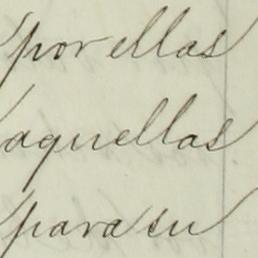 por ellas
aquellas
para su